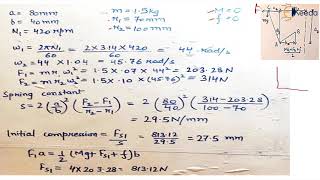 a = 80mm
- m = 1.5kg
M = 0
b = 40mm
- r₁ = 70mm
- f = 0
N₁ = 420 rpm
- r₂ = 100mm
Keeda
ω₁ = 2πN₁/60 = 2×3.14×420/60 = 44 rad/s
ω₂ = 44 × 1.04 = 45.76 rad/s
F₁ = m r₁ ω₁² = 1.5 × 0.07 × 44² = 203.28 N
F₂ = m r₂ ω₂² = 1.5 × .10 × (45.76)² = 314 N
Spring constant
s = 2(a/b)² (F₂ - F₁/r₂ - r₁) = 2(80/40)² (314 - 203.28/100 - 70)
= 29.5 N/mm
Initial compression = Fs₁/s = 813.12/29.5 = 27.5 mm
F₁a = 1/2 (Mg + Fs₁ + f) b
Fs₁ = 4 × 203.28 = 813.12 N